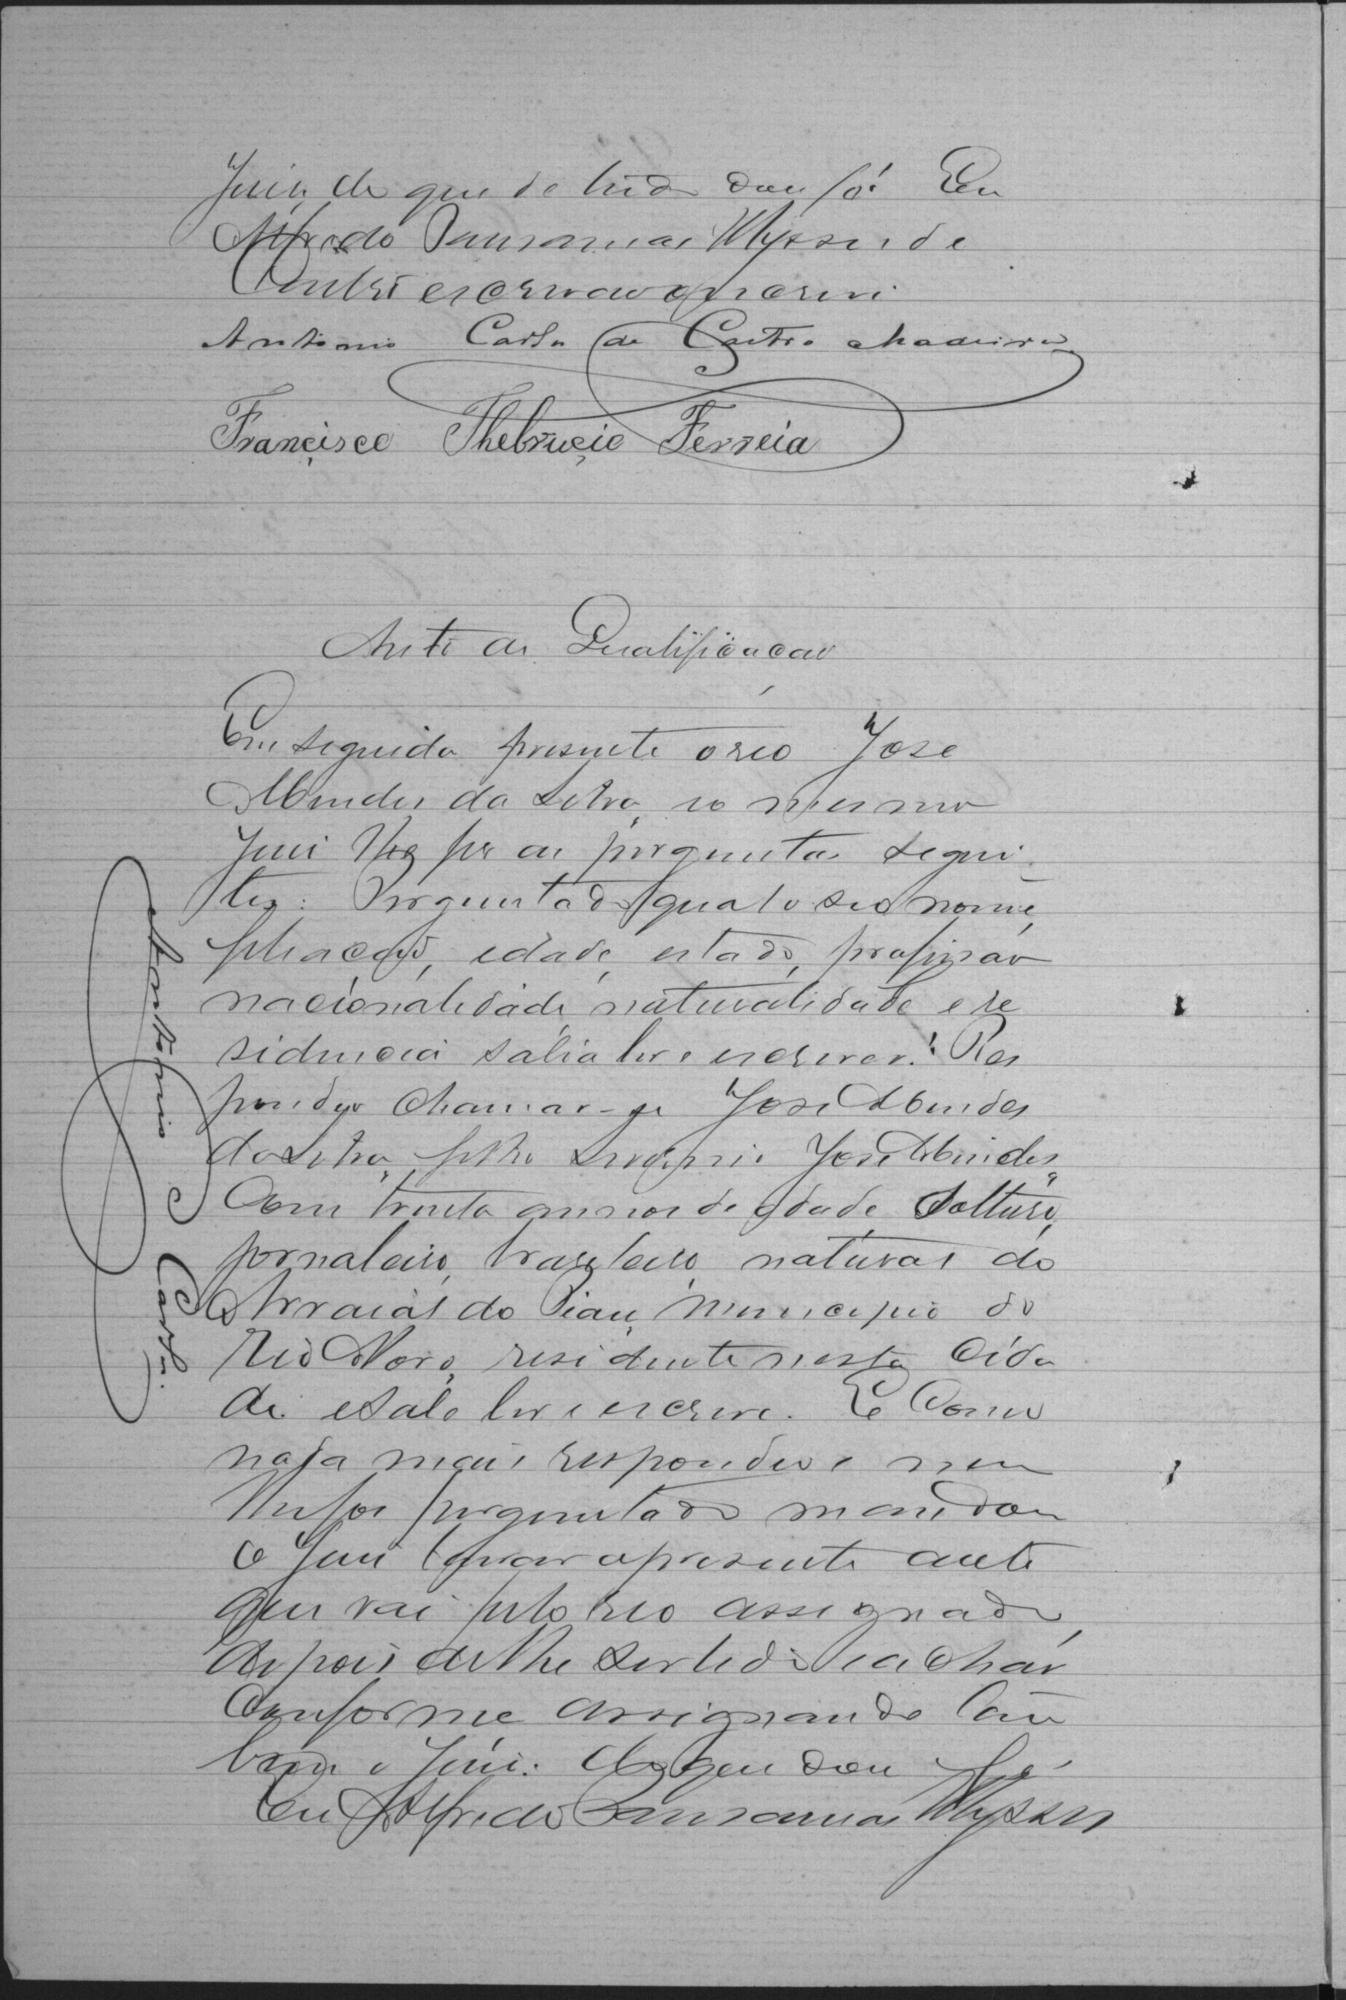 Juiz, de que de tudo dou fé. Eu
Alfredo Pausanias Ulysses de
Castro escrivão o escrevi
Antonio Carlos de Castro Madeira
Francisco Thebrucio Ferreia
Auto de Qualificacao
Em seguida presente o reo José
Mendes da Silva, o mesmo
Juiz lhe fez as perguntas seguin
tes: Perguntado qual o seo nome,
filiação, edade, estado, profissão
nacionalidade, naturalidade e re
sidencia sabia ler e escrever? Res
pondeo chamar-se José Mendes
da Silva, filho José Mendes,
Com trinta annos de edade, Solteiro,
jornaleiro, brazileiro, natural do
Arraial do Piau, Municipio do
Rio Novo, residente nesta Cida
de e sabe ler e escrever. E Como
nada mais respondeo e nem
lhe foi perguntado mandou
o Juiz lavrar o presente auto
que vai pelo reo assignado,
depois de lhe ser lido e achar
conforme assignando tam
bem o Juiz. Do que dou fé
Eu Alfredo Pausanias Ulysses
Antonio Carlos.